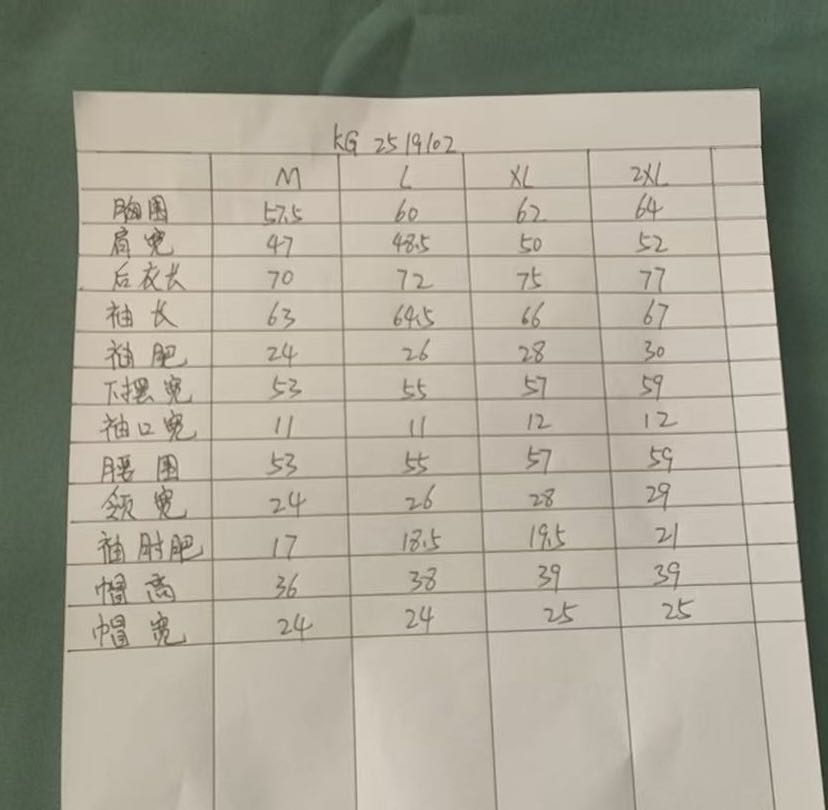 KG 2519102
M L XL 2XL
胸围 57.5 60 62 64
肩宽 47 48.5 50 52
后衣长 70 72 75 77
袖长 63 64.5 66 67
袖肥 24 26 28 30
下摆宽 53 55 57 59
袖口宽 11 11 12 12
腰围 53 55 57 59
领宽 24 26 28 29
袖肘肥 17 18.5 19.5 21
帽高 36 38 39 39
帽宽 24 24 25 25